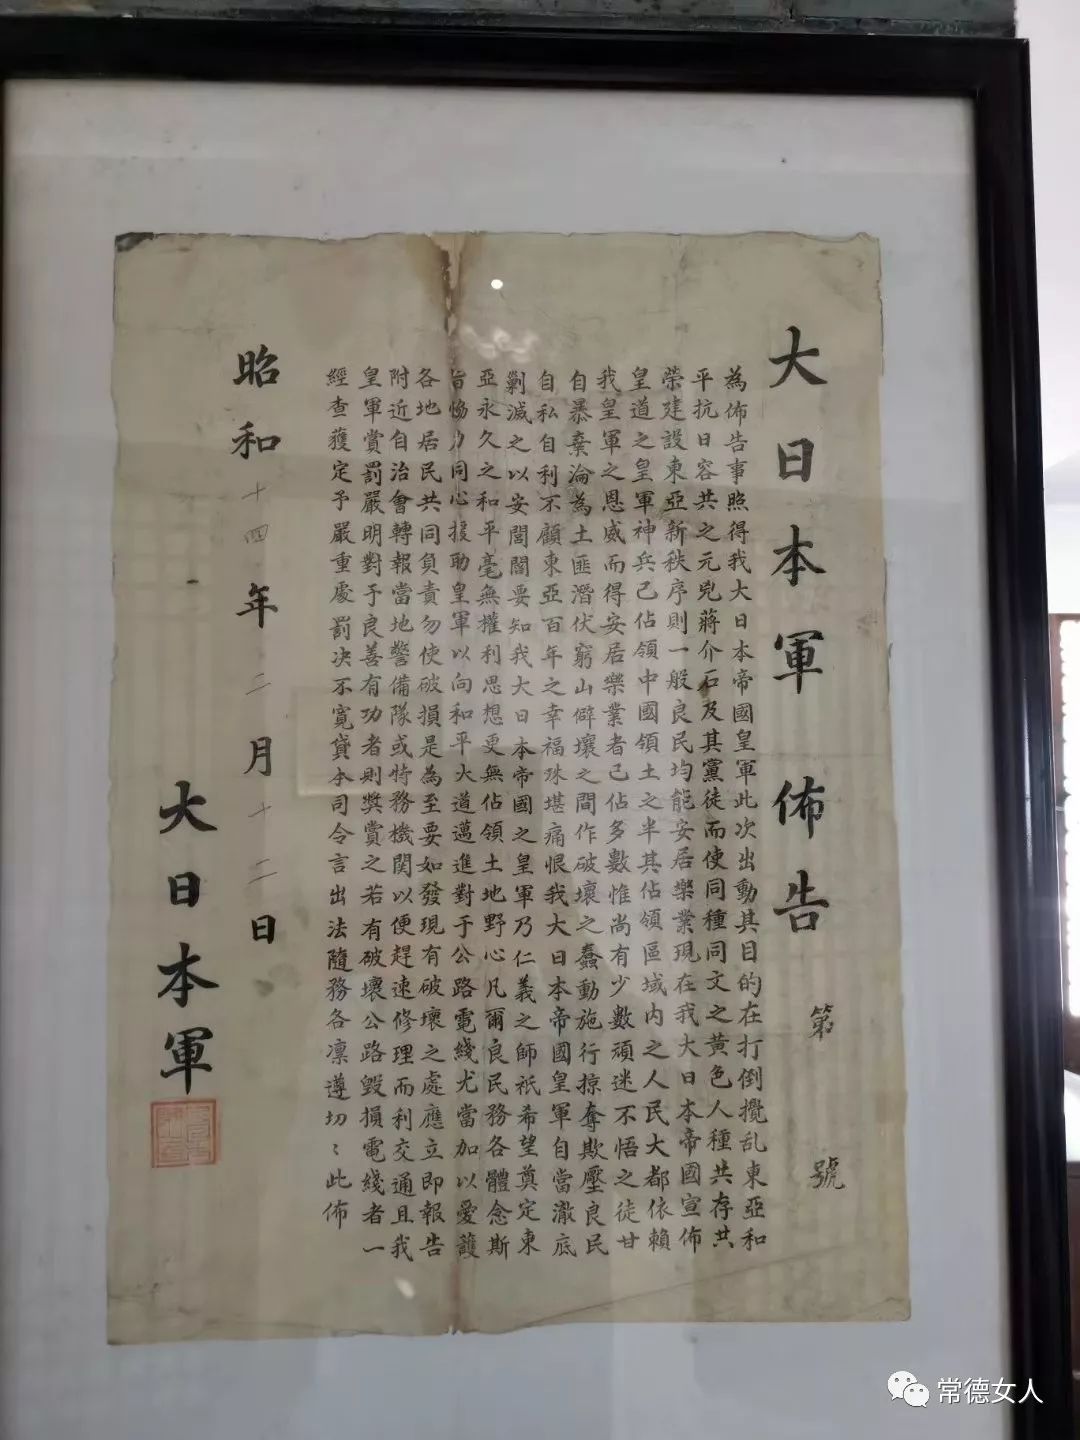 大日本軍佈告
第 號
為佈告事照得我大日本帝國皇軍此次出動其目的在打倒攪乱東亞和
平抗日容共之元兇蔣介石及其黨徒而使同種同文之黄色人種共存共
榮建設東亞新秩序則一般良民均能安居樂業現在我大日本帝國宣佈
皇道之皇軍神兵已佔領中國領土之半其佔領區域内之人民大都依賴
我皇軍之恩威而得安居樂業者已佔多數惟尚有少數頑迷不悟之徒甘
自暴棄淪為土匪潛伏窮山僻壤之間作破壞之蠢動施行掠奪欺壓良民
自私自利不顧東亞百年之幸福殊堪痛恨我大日本帝國皇軍自當澈底
剿滅之以安閭閻要知我大日本帝國之皇軍乃仁義之師祇希望奠定東
亞永久之和平毫無權利思想更無佔領土地野心凡爾良民務各體念斯
旨恊力同心援助皇軍以向和平大道邁進對于公路電綫尤當加以愛護
各地居民共同負責勿使破損是為至要如發現有破壞之處應立即報告
附近自治會轉報當地警備隊或特務機関以便趕速修理而利交通且我
皇軍賞罰嚴明對于良善有功者則奬賞之若有破壞公路毀損電綫者一
經查獲定予嚴重處罰决不寬貸本司令言出法隨務各凛遵切〻此佈
昭和十四年二月十二日
大日本軍
常德女人